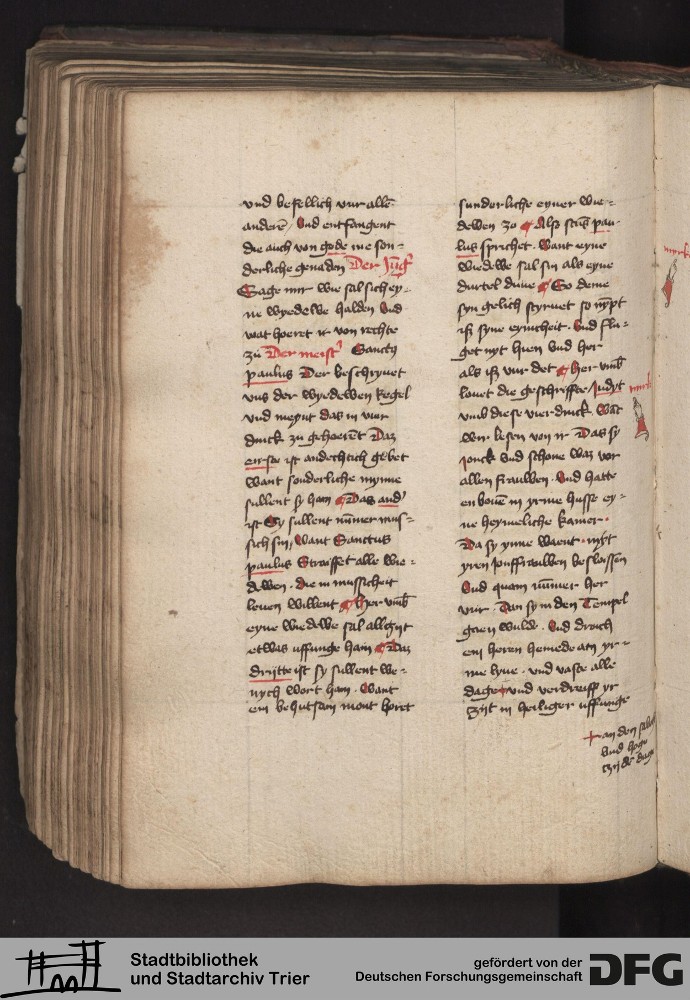 vnd besellich vur alle
anderē / Vnd entfangent
die auch von gode me son-
derliche genaden Der Jūg̕
Sage mir wie sal sich ey-
ne wyedewe halden Vnd
wat hoeret ir von rechte
zu Der meist̕ Sanctꝯ
paulus Der beschryuet
vns der wyedewen regel
vnd meynt das in vier
druck zu gehoerēt Daz
eirste ist andechtich gebet
want sonderliche mynne
sullent sy hain Das and̕
ist Sy sullent nūmer mus-
sich sin / Want Sanctus
paulus Straiffet alle wie-
dewen . die in mussicheit
leuen willent Her vmb
eyne wiedewe sal allzijt
etwas uffunge hain Daz
dritte ist sy sullent we-
nych wort hain . Want
ein behutsam mont horet
sunderliche eyner wie-
dewen zo Also sctūs pau-
lus sprichet . Want eyne
wiedewe sal sin als eyne
durtel duue So deme
syn gelich styruet so nȳpt
iß syne eynicheit . Vnd flu-
get nyt hien vnd her
als iß vur det Her vmb
louet die geschriffte / Judyt
vmb diese vier druck . Wāt
wir lesen von ir Das sy
jonck vnd schone waz vor
allen frauwen . Vnd hatte
enbouē in yrme husse ey-
ne heymeliche kamer .
Da sy ynne waent . myt
yren jonffrauwen beslossen
Vnd quam nūmer her
vur . Dan sy in den Tempel
gaen wulde . Vnd droich
ein heren hemede an yr-
me lyue . vnd vaste alle
dage + vnd verdreiff yr
tzijt in heiliger uffunge
+ an den
vnd hoge
tzijde dage
Stadtbibliothek
und Stadtarchiv Trier
gefördert von der
Deutschen Forschungsgemeinschaft
DFG